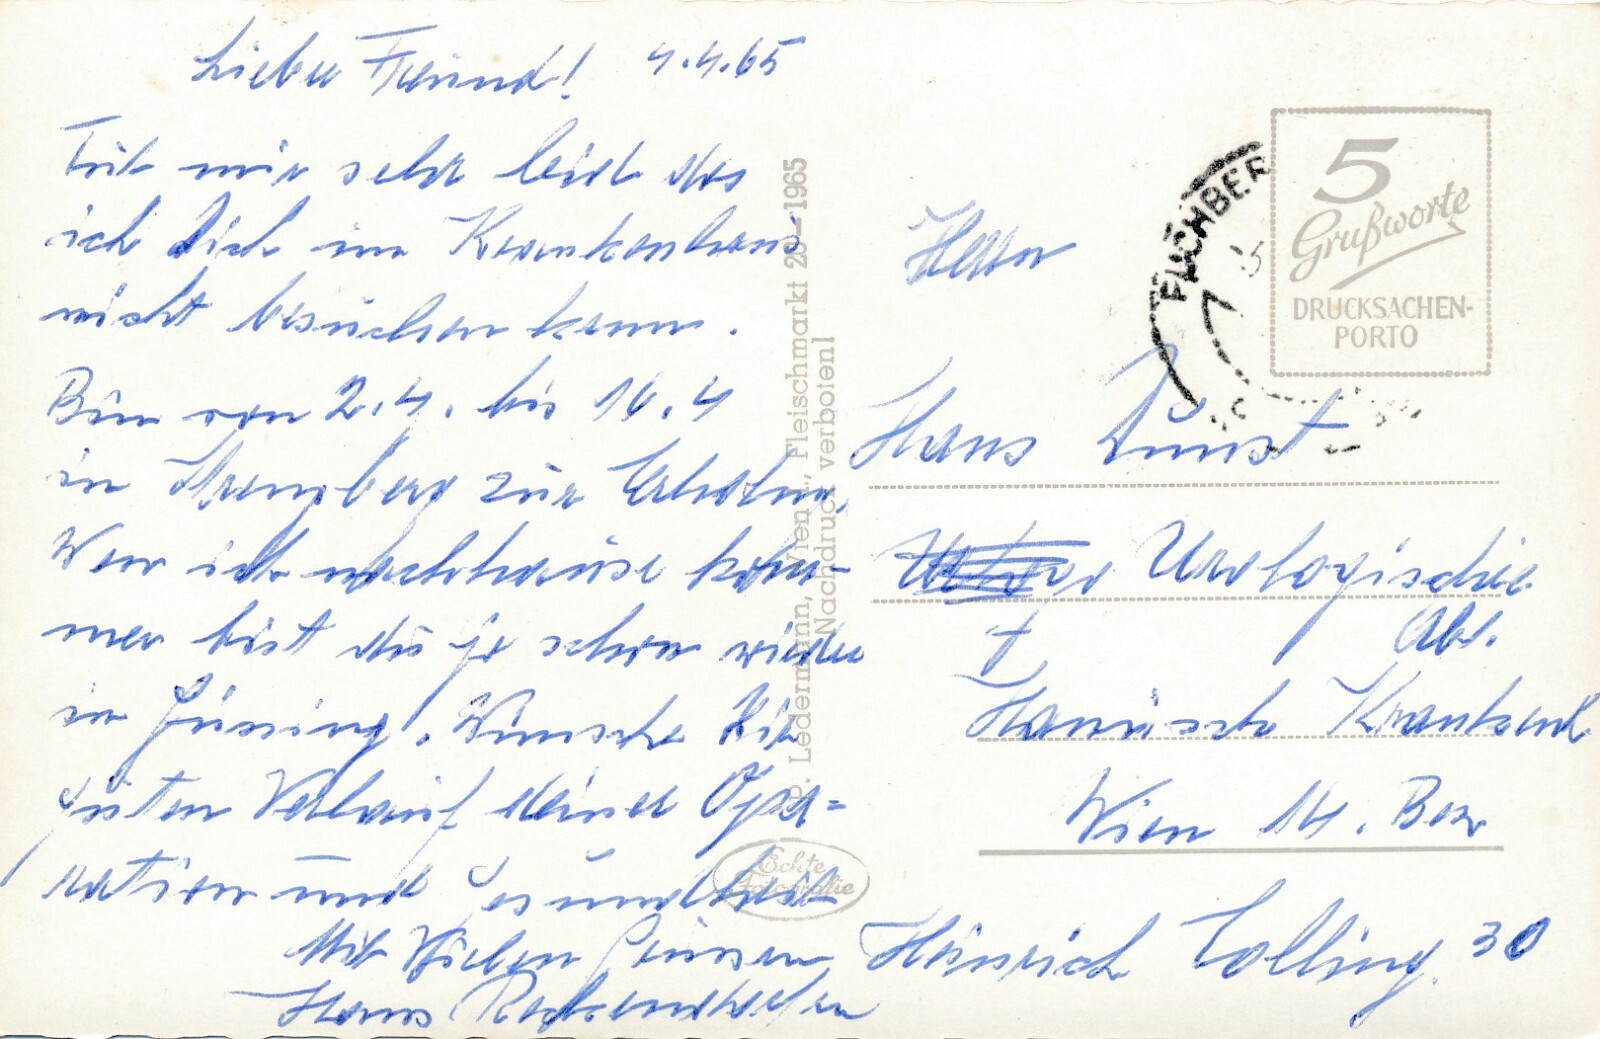 Lieber Freund! 4.4.65
Tut mir sehr leid das
ich Dich im Krankenhaus
nicht besuchen kann.
Bin von 2.4. bis 16.4
in zur Erholung.
Wen ich nachhause kom-
men bist du ja schon wieder
in Güssing. Wünsche Dir
guten Verlauf deiner Ope=
ration und gesundheit
Mit Vielen Grüssen
Hans
P. Ledermann, Wien I., Fleischmarkt 20 – 1965
Nachdruck verboten!
Echte
Fotografie
5
Grußworte
DRUCKSACHEN-
PORTO
Herrn
Hans Dunst
Urologische
Abt.
Hanusch Krankenh
Wien 14. Bez
Heinrich Colling. 30